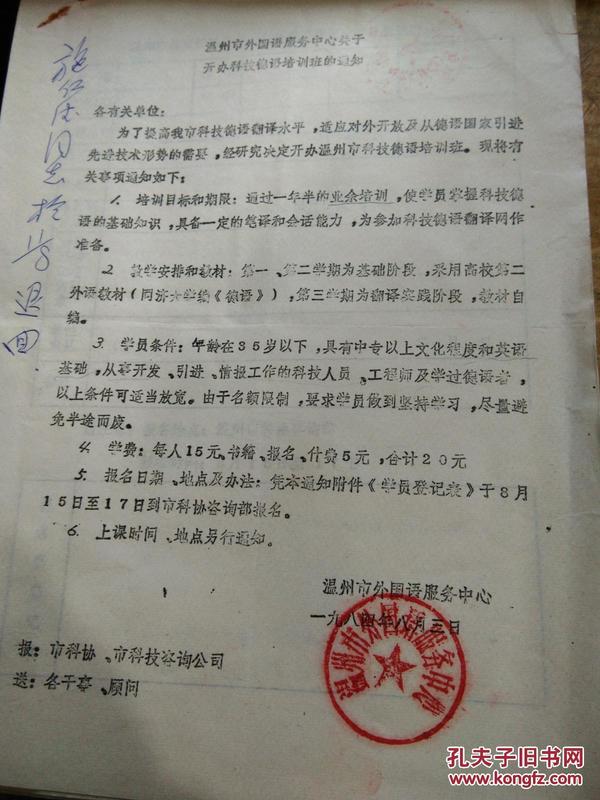 温州市外国语服务中心关于
开办科技德语培训班的通知
各有关单位:
为了提高我市科技德语翻译水平,适应对外开放及从德语国家引进
先进技术形势的需要,经研究决定开办温州市科技德语培训班。现将有
关事项通知如下:
1. 培训目标和期限:通过一年半的业余培训,使学员掌握科技德
语的基础知识,具备一定的笔译和会话能力,为参加科技德语翻译网作
准备。
2. 教学安排和教材:第一、第二学期为基础阶段,采用高校第二
外语教材(同济大学编《德语》),第三学期为翻译实践阶段,教材自
编。
3. 学员条件:年龄在35岁以下,具有中专以上文化程度和英语
基础,从事开发、引进、情报工作的科技人员、工程师及学过德语者,
以上条件可适当放宽。由于名额限制,要求学员做到坚持学习,尽量避
免半途而废。
4. 学费:每人15元、书籍、报名、什费5元,合计20元
5. 报名日期、地点及办法:凭本通知附件《学员登记表》于8月
15日至17日到市科协咨询部报名。
6. 上课时间、地点另行通知。
温州市外国语服务中心
一九八四年八月三日
温州市外国语服务中心
报:市科协、市科技咨询公司
送:各干事、顾问
同志
退回
孔夫子旧书网
www.kongfz.com